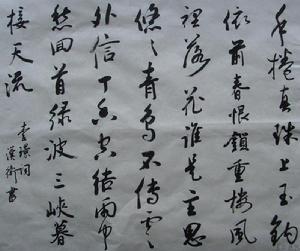 手捲真珠上玉鈎
依前春恨鎖重樓風
裡落花誰是主思
悠〻青鳥不傳雲
外信丁香空結雨中
愁回首綠波三峽暮
接天流
李璟詞
漢衛書